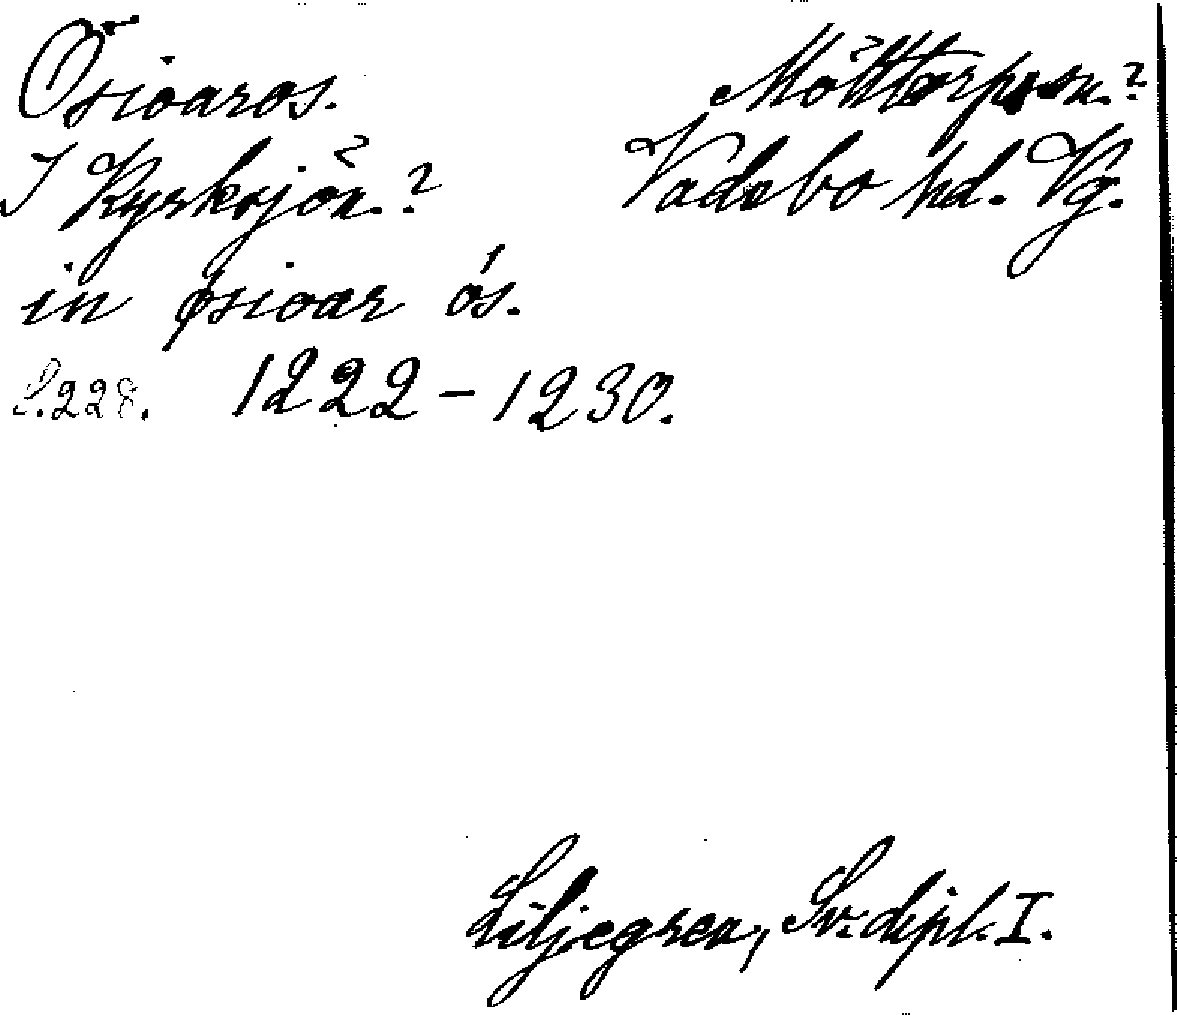 Ösioaros.
Möltorps sn.?
I Kyrksjön.?
Vadsbo hd. Vg.
in øsioar ós.
S. 228. 1222-1230.
Liljegren, Sv. dipl. I.